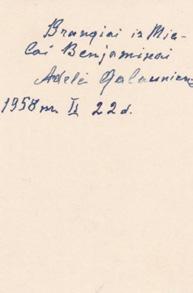 Brangiai ir Mie-
lai Benjaminai
Adelė Galaunienė
1958 m. II 22 d.